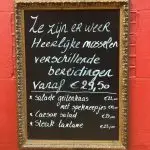 Ze zijn er weer
Heerlijke mosselen
verschillende
bereidingen
vanaf €29,50
* Salade geitenkaas
met spekreepjes
* Caesar salad
* Steak tartare